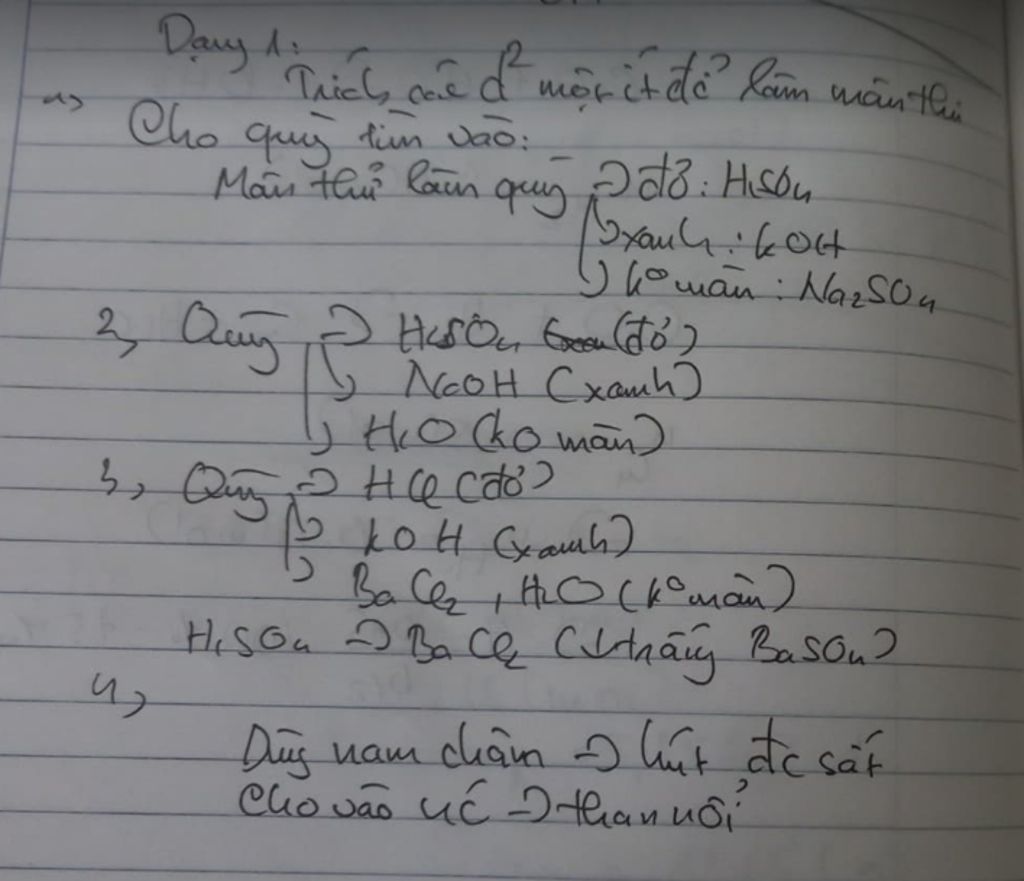 Dạng 1:
Trích các d² một ít để làm mẫu thử
1,
Cho quỳ tím vào:
Mẫu thử làm quỳ → đỏ: H₂SO₄
→ xanh: KOH
→ k⁰ màu: Na₂SO₄
2, Quỳ → H₂SO₄ (đỏ)
→ NaOH (xanh)
→ H₂O (ko màu)
3, Quỳ → HCl (đỏ)
→ KOH (xanh)
→ BaCl₂, H₂O (k⁰ màu)
H₂SO₄ → BaCl₂ (↓ trắng BaSO₄)
4,
Dùng nam châm → hút đc sắt
Cho vào nước → than nổi